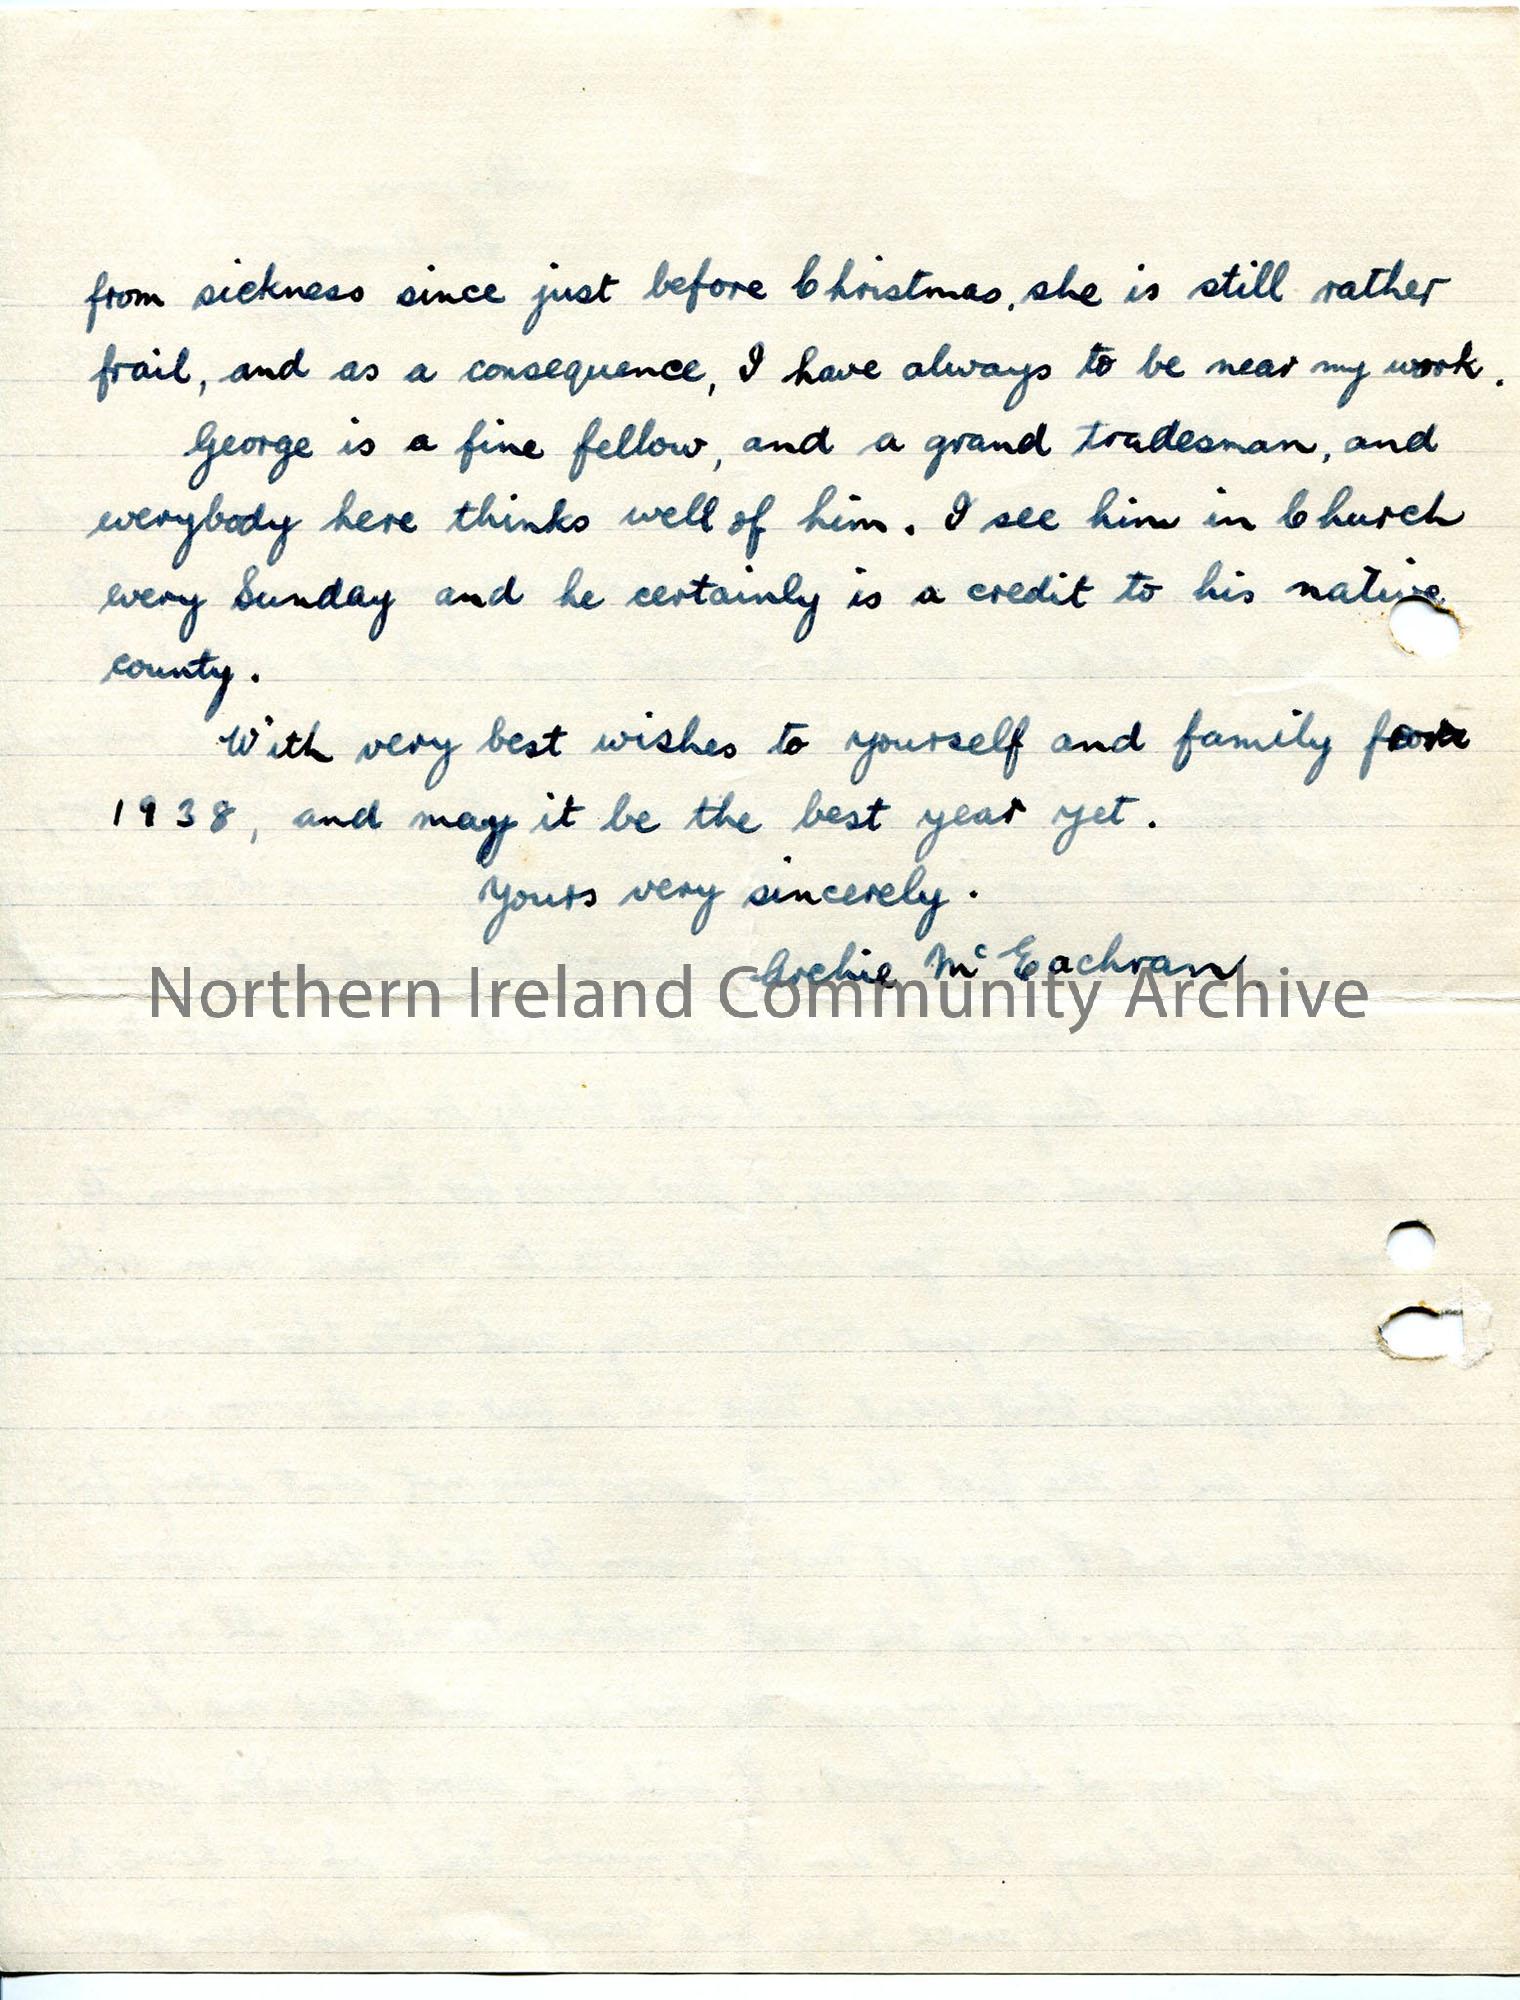 from sickness since just before Christmas. she is still rather
frail, and as a consequence, I have always to be near my work.
George is a fine fellow, and a grand tradesman, and
everybody here thinks well of him. I see him in Church
every Sunday and he certainly is a credit to his native
county.
With very best wishes to yourself and family for
1938, and may it be the best year yet.
Yours very sincerely.
Archie McEachran
Northern Ireland Community Archive